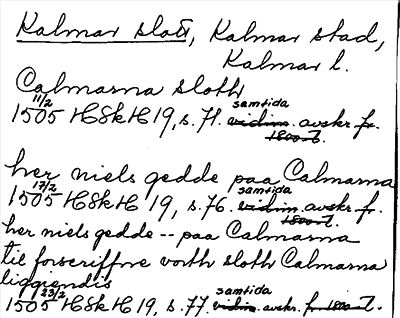 Kalmar slott, Kalmar stad,
Kalmar l.
Calmarna sloth
11/2 samtida
1505 HSkH 19, s. 71. vidim. avskr. fr.
1800-t.
her niels gedde paa Calmarna
17/2 samtida
1505 HSkH 19, s. 76. vidim. avskr. fr.
1800-t.
her niels gedde -- paa Calmarna
til forscriffne worth sloth Calmarna
liggiendis
23/2 samtida
1505 HSkH 19, s. 77. vidim. avskr. fr. 1800-t.